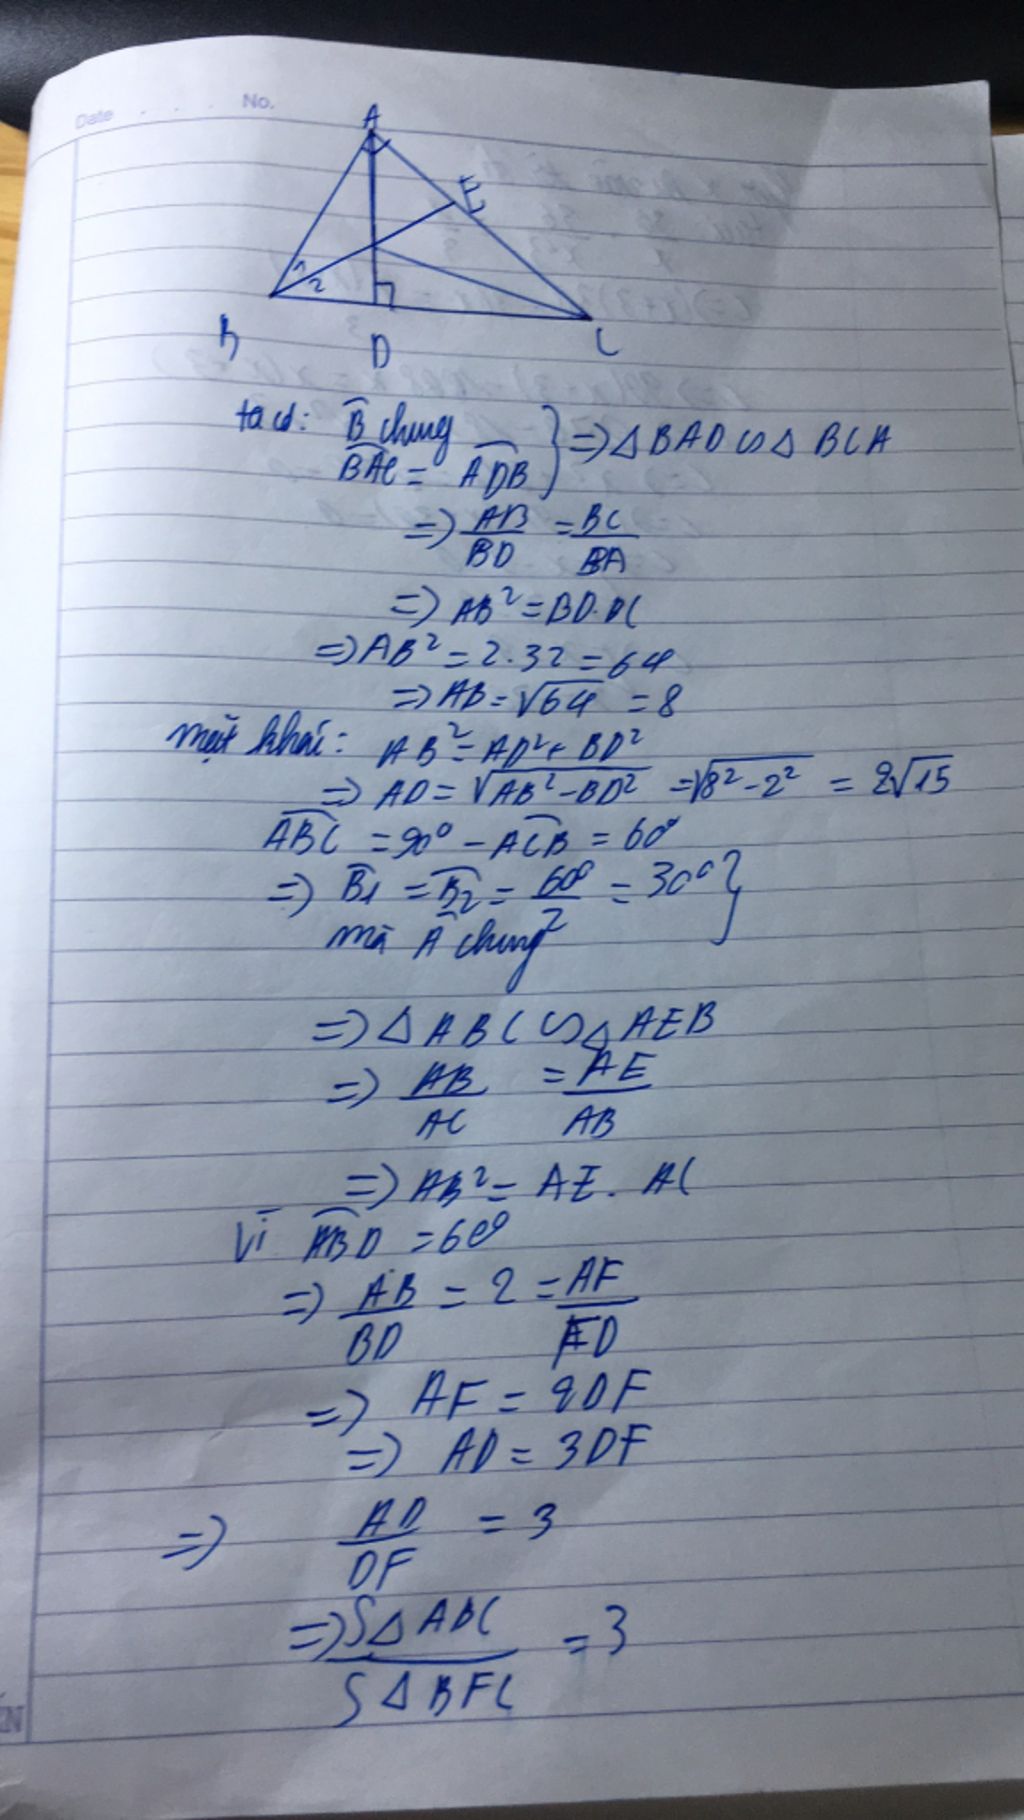 Date . . . . No.
A
E
1
2
B
D
C
ta có: B̂ chung } => △BAD ∽ △BCA
BAC = ADB
=> AB/BD = BC/BA
=> AB² = BD.DC
=> AB² = 2.32 = 64
=> AB = √64 = 8
mặt khác: AB² = AD² + BD²
=> AD = √AB² - BD² = √8² - 2² = 2√15
ABC = 90° - ACB = 60°
=> B1 = B2 = 60°/2 = 30° }
mà Â chung
=> △ABC ∽ △AEB
=> AB/AC = AE/AB
=> AB² = AE. AC
Vì ABD = 60°
=> AB/BD = 2 = AF/FD
=> AF = 2DF
=> AD = 3DF
=> AD/DF = 3
=> S△ABC/S△BFC = 3